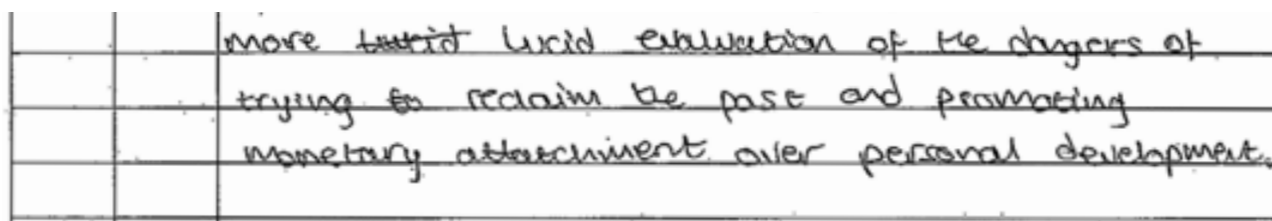 more lucid evaluation of the dangers of
trying to reclaim the past and promoting
monetary attatchment over personal development.